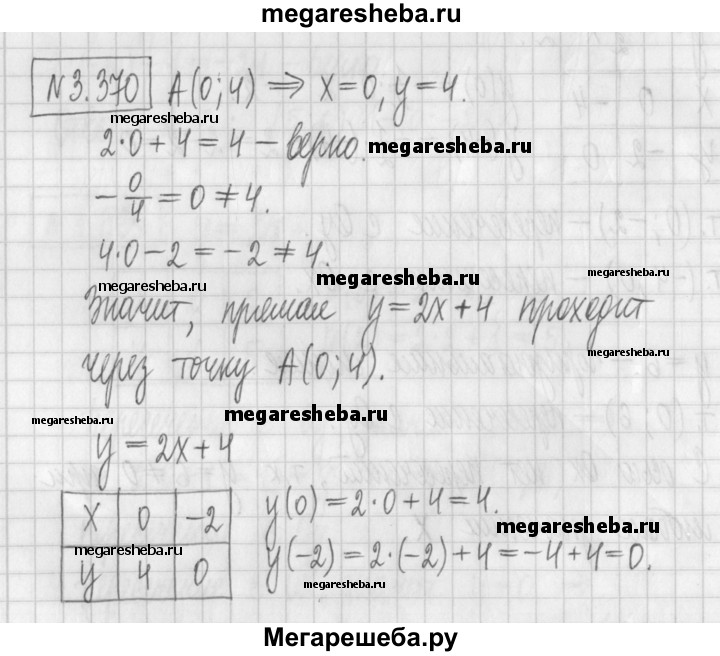 megaresheba.ru
№3.370 A(0;4) ⇒ x=0, y=4.
megaresheba.ru
2·0+4=4 – верно.
megaresheba.ru
-0/4=0≠4.
4·0-2=-2≠4.
megaresheba.ru
megaresheba.ru
megaresheba.ru
Значит, прямая y=2x+4 проходит
через точку A(0;4).
megaresheba.ru
megaresheba.ru
megaresheba.ru
y=2x+4
x 0 -2
y 4 0
megaresheba.ru
y(0)=2·0+4=4.
megaresheba.ru
y(-2)=2·(-2)+4=-4+4=0.
megaresheba.ru
Мегарешеба.ру